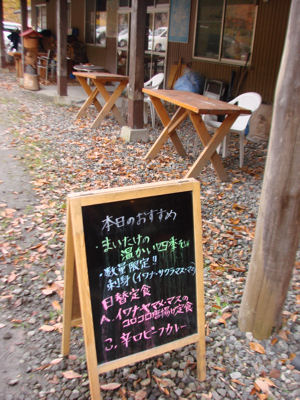 本日のおすすめ
・まいたけの
温かい四季そば
・数量限定!!
刺身(イワナ・サクラマスマス)
日替定食
A.イワナ・ヤマメ・マスの
コロコロ唐揚げ定食
こ.辛口ビーフカレー